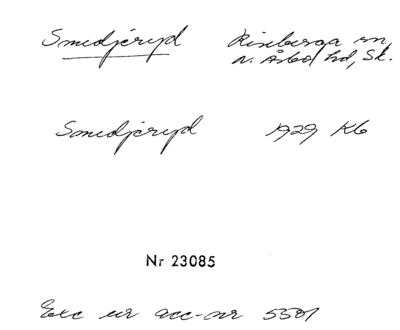 Smedjeryd Riseberga sn,
N. Åsbo hd, Sk.
Smedjeryd 1929 Kb
Nr 23085
Exc ur acc-nr 5501